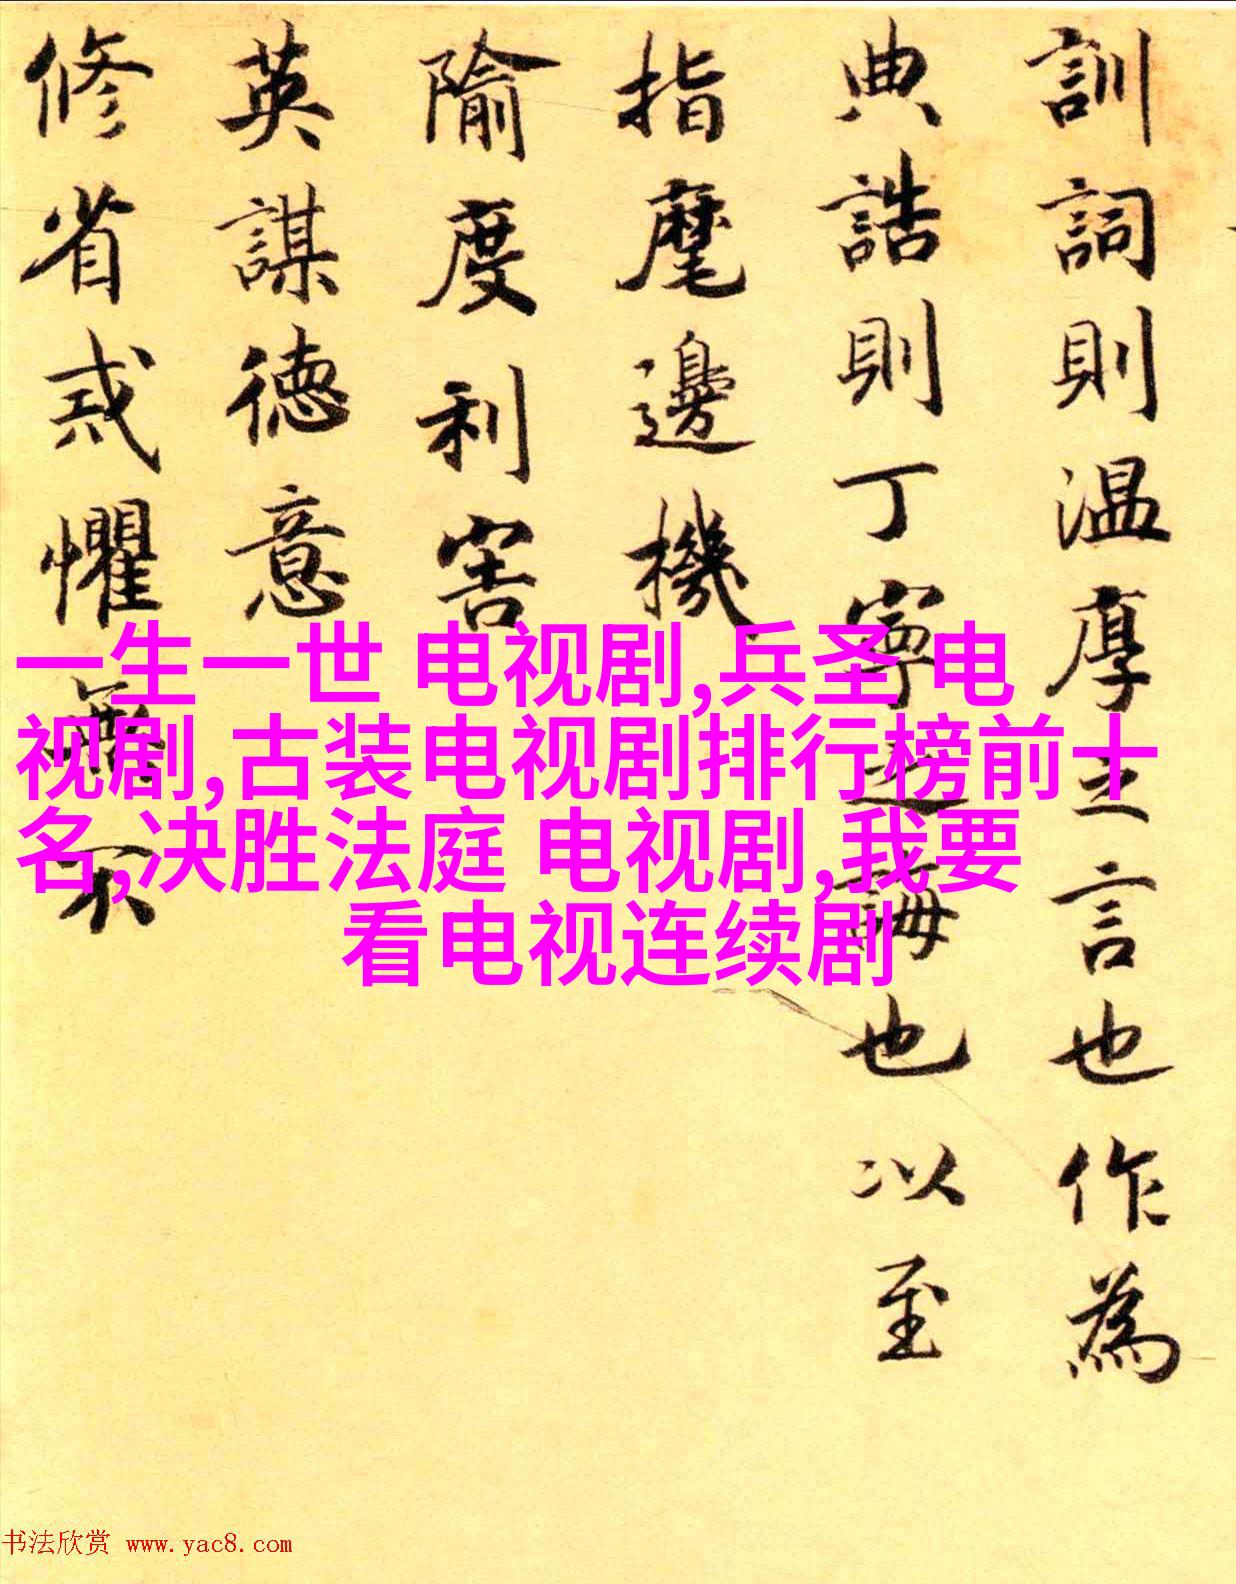 訓詞則温厚之言也作為
典誥則丁寧之誨也以至
指麾邊機
隃度利害
英謀徳意
修省戒懼無不
一生一世 电视剧,兵圣 电
视剧,古装电视剧排行榜前十
名,决胜法庭 电视剧,我要
看电视连续剧
书法欣赏 www.yac8.com